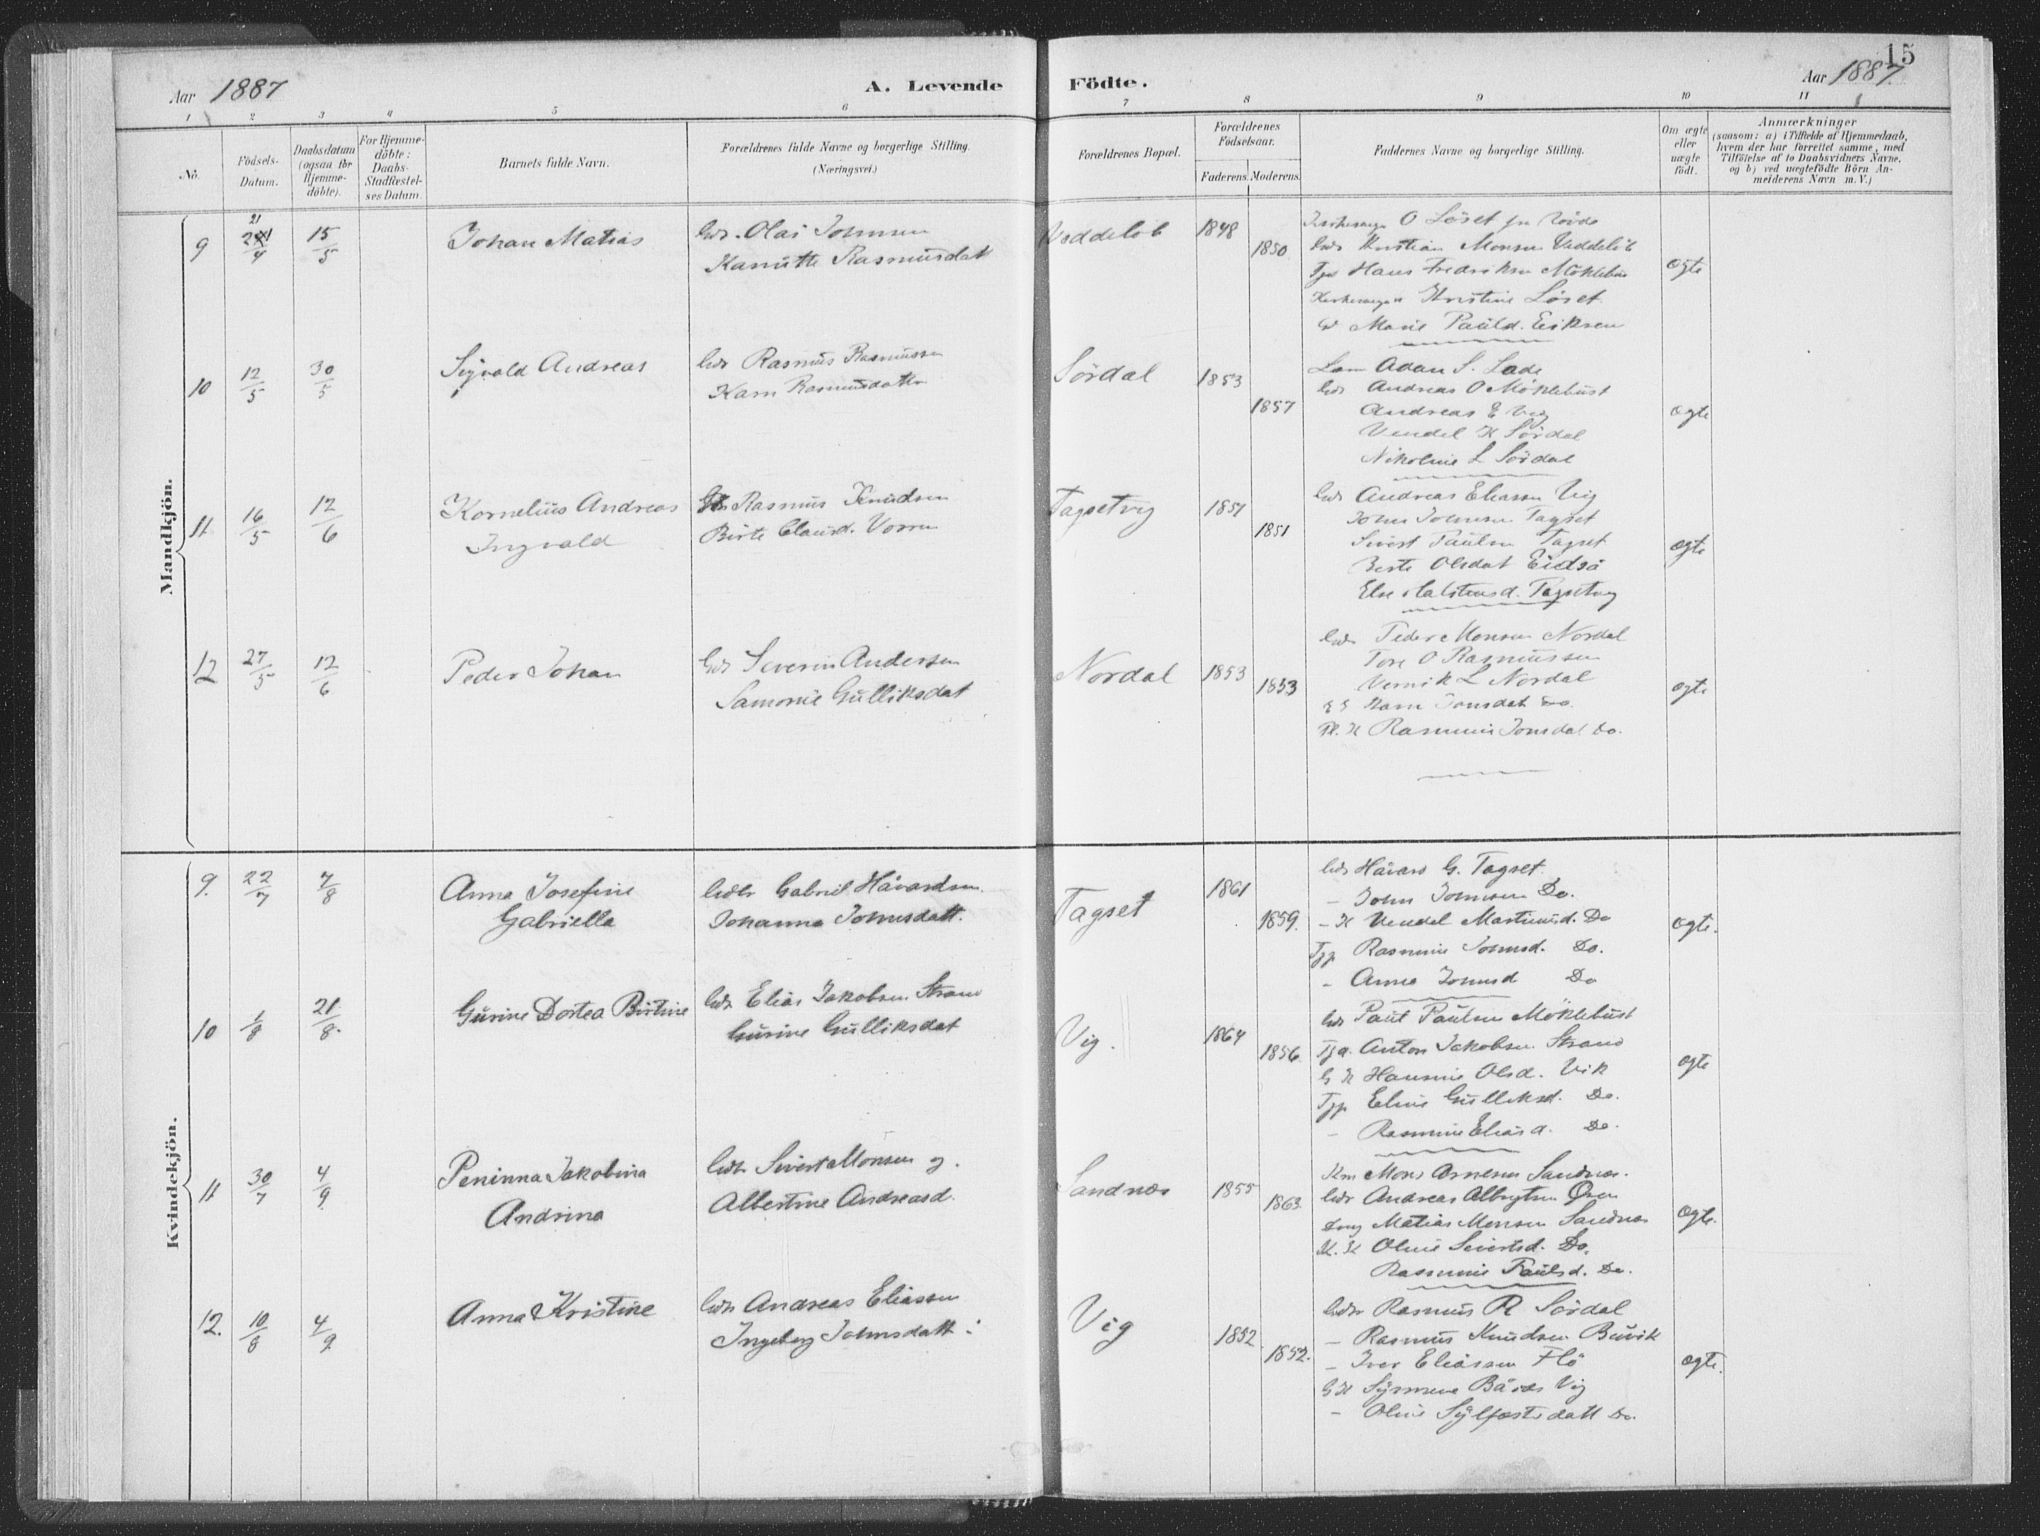 15
Aar 1887
A. Levende
Födte.
Aar 1887
1 2 3 4 5 6 7 8 9 10 11
No.
Födsels-
Datum.
Daabsdatum
(ogsaa for
Hjemme-
döbte).
For Hjemme-
döbte:
Daabs-
Stadfæstel-
ses Datum.
Barnets fulde Navn.
Forældrenes fulde Navne og borgerlige Stilling.
(Næringsvei.)
Forældrenes Bopæl.
Forældrenes
Födselsaar.
Faderens. Moderens.
Faddernes Navne og borgerlige Stilling.
Om ægte
eller
uægte
födt.
Anmærkninger
(saasom: a) i Tilfælde af Hjemmedaab,
hvem der har forrettet samme, med
Tilföielse af to Daabsvidners Navne.
og b) ved uægtefödte Börn An-
melderens Navn m. V.)
Mandkjön.
9 21/4 15/5 Johan Matias
Olai Johnsen
Rasmusdat
Veddeløb 1848 1850
O Løset
Kristian Monsen Veddeløb
Hans Fredriksen Møklebust
Kristine Løset
Marie Pauld. Eriksen
ægte
10 12/5 30/5 Sigvald Andreas
Gdr Rasmus Rasmussen
Karn Rasmusdatter
Sørdal 1853 1857
Adan S. Lade
Gdr Andreas O Møklebust
Andreas E Vig
Vendel K Sørdal
Nikoline L Sørdal
ægte
11 16/5 12/6 Kornelius Andreas
Ingvald
Rasmus Knudsen
Birte Clausd. Vorren
Tagsetvig 1851 1851
Gdr Andreas Eliasen Vig
John Johnsen Tagset
Sivert Paulsen Tagset
Berte Olsdat Eidså
Else Halstensd. Tagsetvig
ægte
12 27/5 12/6 Peder Johan
Gdr Severin Andersen
Samonie Gulliksdat
Nordal 1853 1853
Gdr Peder Monsen Nordal
Tore O Rasmussen
L Nordal
Karn Jonsdat Do.
Rasmine Jonsdat Do.
ægte
Kvindekjön.
9. 22/7 7/8 Anna Josefine
Gabriella
Gabriel Håvardsen
Johanna Johnsdatt.
Tagset 1861 1859.
Gdr Håvard G. Tagset
– John Johnsen Do.
– K Vendel Martinusd. Do
Rasmine Johnsd. Do.
– Anna Johnsd Do
ægte.
10 1/8 21/8. Gurine Dortea Birtine
Gdr Elias Jakobsen Strand
Gurine Gulliksdat
Vig. 1864 1856.
Gdr Paul Paulsen Møklebust
Anton Jakobsen Strand
G K Hansine Olsd. Vik
Eline Gulliksd. Do.
– Rasmine Eliasd. Do.
ægte
11 30/7 4/9 Peninna Jakobina
Andrina
Sivert Monsen og
Albertine Andreasd.
Sandnæs 1855 1863.
Mons Arnesen Sandnæs.
Gdr Andreas Albrigtsen Øren
Matias Monsen Sandnæs
K. K Oline Seivertsd. Do.
Rasmine Paulsd. Do.
ægte.
12. 10/8 4/9 Anna Kristine
Gdr Andreas Eliassen
Ingeborg Johnsdatt:
Vig 1852 1852.
Rasmus R Sørdal
– Rasmus Knudsen Buvik
– Iver Eliassen Flø
G K Vig
– Oline Do.
ægte.